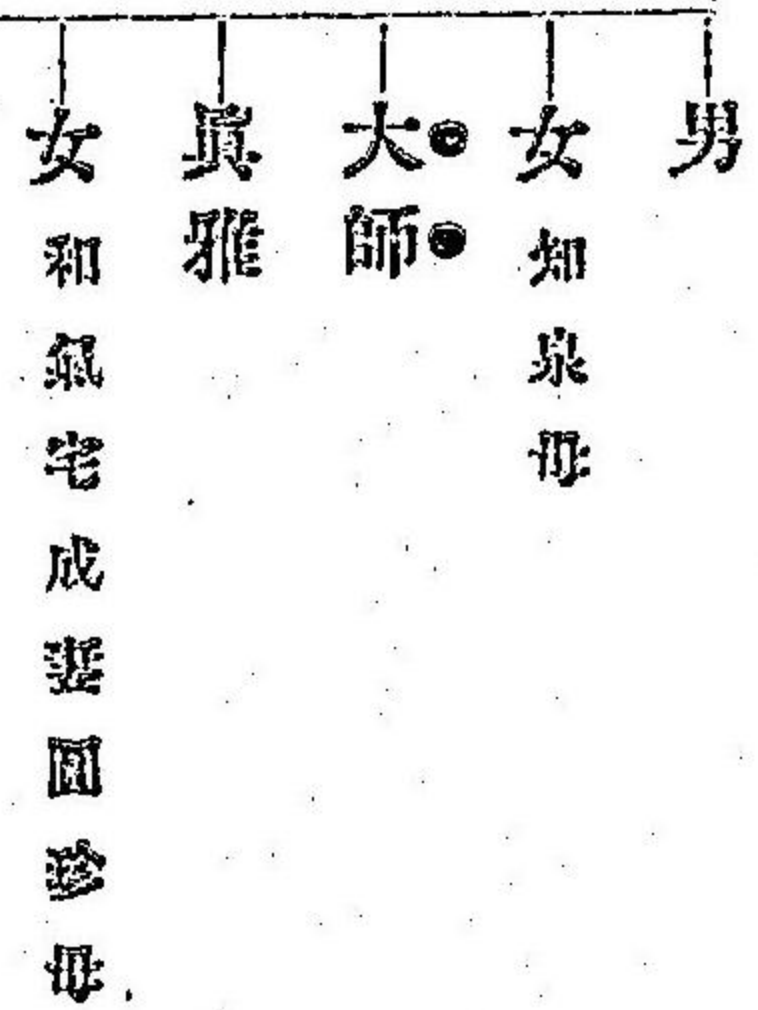 男
女 知泉母
大師
眞雅
女 和氣宅成妻圓珍母